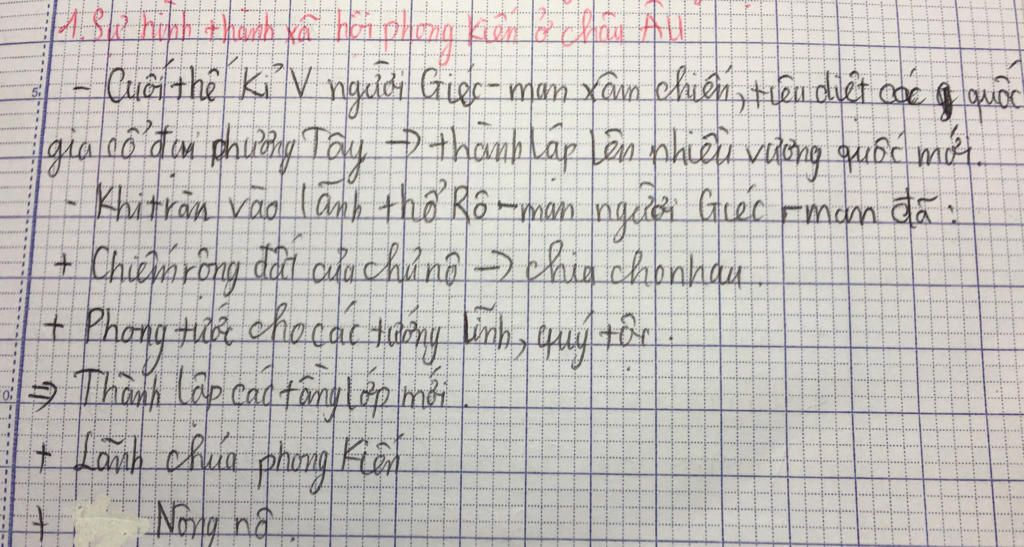 1. Sự hình thành xã hội phong kiến ở châu ÂU
- Cuối thế kỉ V người Giéc-man xâm chiến, tiêu diệt các quốc
gia cổ đại phương Tây → thành lập lên nhiều vương quốc mới.
- Khi tràn vào lãnh thổ Rô-man người Giéc-man đã:
+ Chiếm rộng đất của chủ nô → chia cho nhau.
+ Phong tước cho các tướng lĩnh, quý tộc.
⇒ Thành lập các tầng lớp mới.
+ Lãnh chúa phong kiến
+ Nông nô.